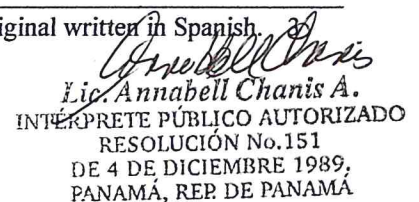 iginal written in Spanish.
Lic. Annabell Chanis A.
INTÉRPRETE PÚBLICO AUTORIZADO
RESOLUCIÓN No.151
DE 4 DE DICIEMBRE 1989,
PANAMÁ, REP. DE PANAMÁ